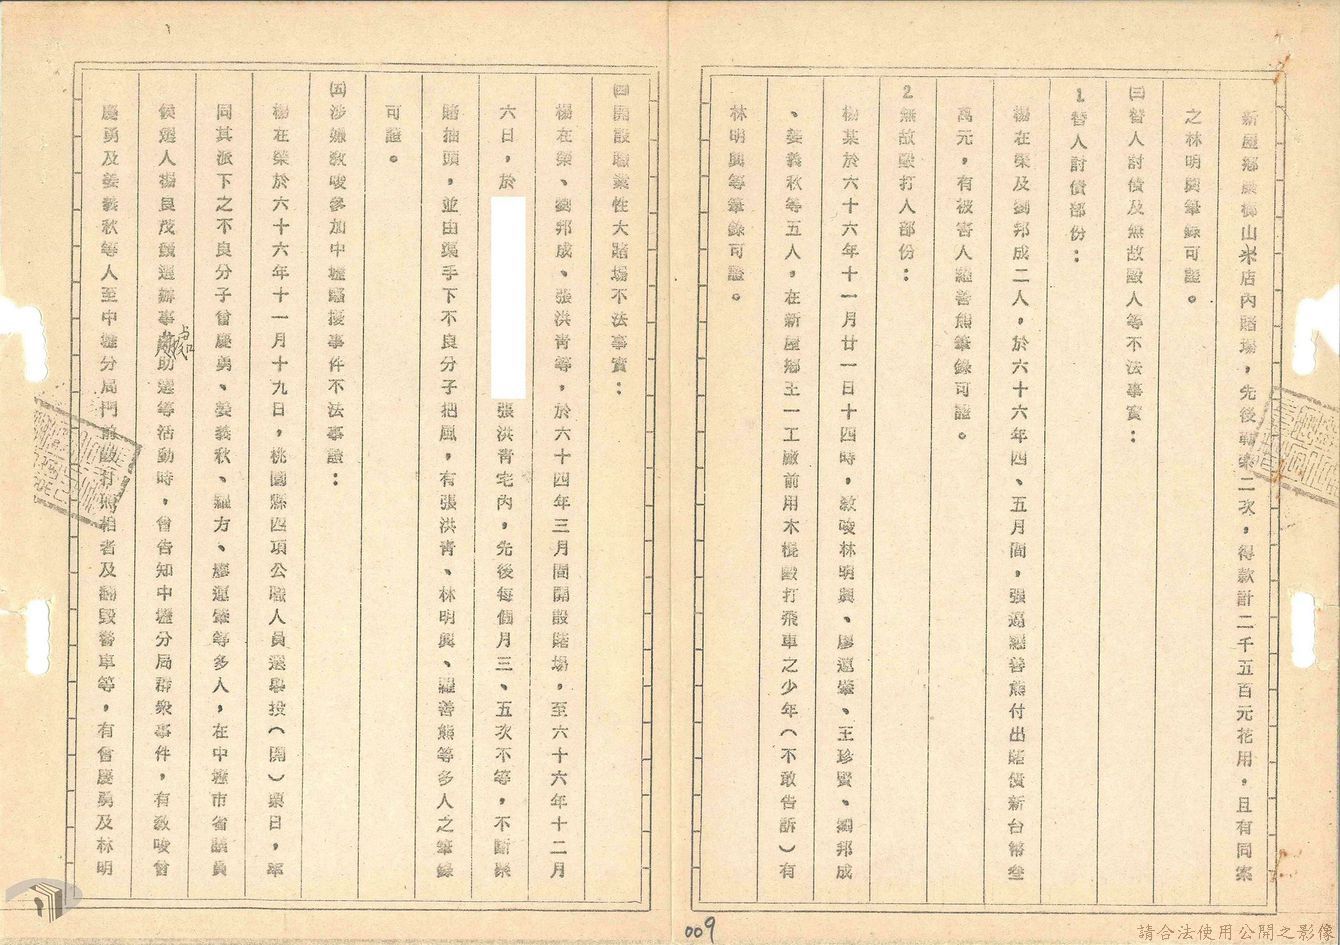 新屋鄉農榔山米店內賭場，先後勒索二次，得款計二千五百元花用，且有同案
之林明興筆錄可證。
㈢替人討債及無故毆人等不法事實：
1.替人討債部份：
楊在榮及劉邦成二人，於六十六年四、五月間，强逼羅善熊付出賭債新台幣叁
萬元，有被害人羅善熊筆錄可證。
2.無故毆打人部份：
楊某於六十六年十一月廿一日十四時，教唆林明興、廖運肇、王珍賢、劉邦成
、姜義秋等五人，在新屋鄉王一工廠前用木棍毆打飛車之少年（不敢告訴）有
林明興等筆錄可證。
㈣開設職業性大賭場不法事實：
楊在榮、劉邦成、張洪青等，於六十四年三月間開設賭場，至六十六年十二月
六日，於
張洪青宅內，先後每個月三、五次不等，不斷聚
賭抽頭，並由渠手下不良分子把風，有張洪青、林明興、羅善熊等多人之筆錄
可證。
㈤涉嫌教唆參加中壢騷擾事件不法事證：
楊在榮於六十六年十一月十九日，桃園縣四項公職人員選舉投（開）票日，率
同其派下之不良分子曾慶勇、姜義秋、羅方、廖運肇等多人，在中壢市省議員
候選人楊良茂競選辦事處助選等活動時，曾告知中壢分局群衆事件，有教唆曾
慶勇及姜義秋等人至中壢分局門前毆打照相者及翻毀警車等，有曾慶勇及林明
009
請合法使用公開之影像